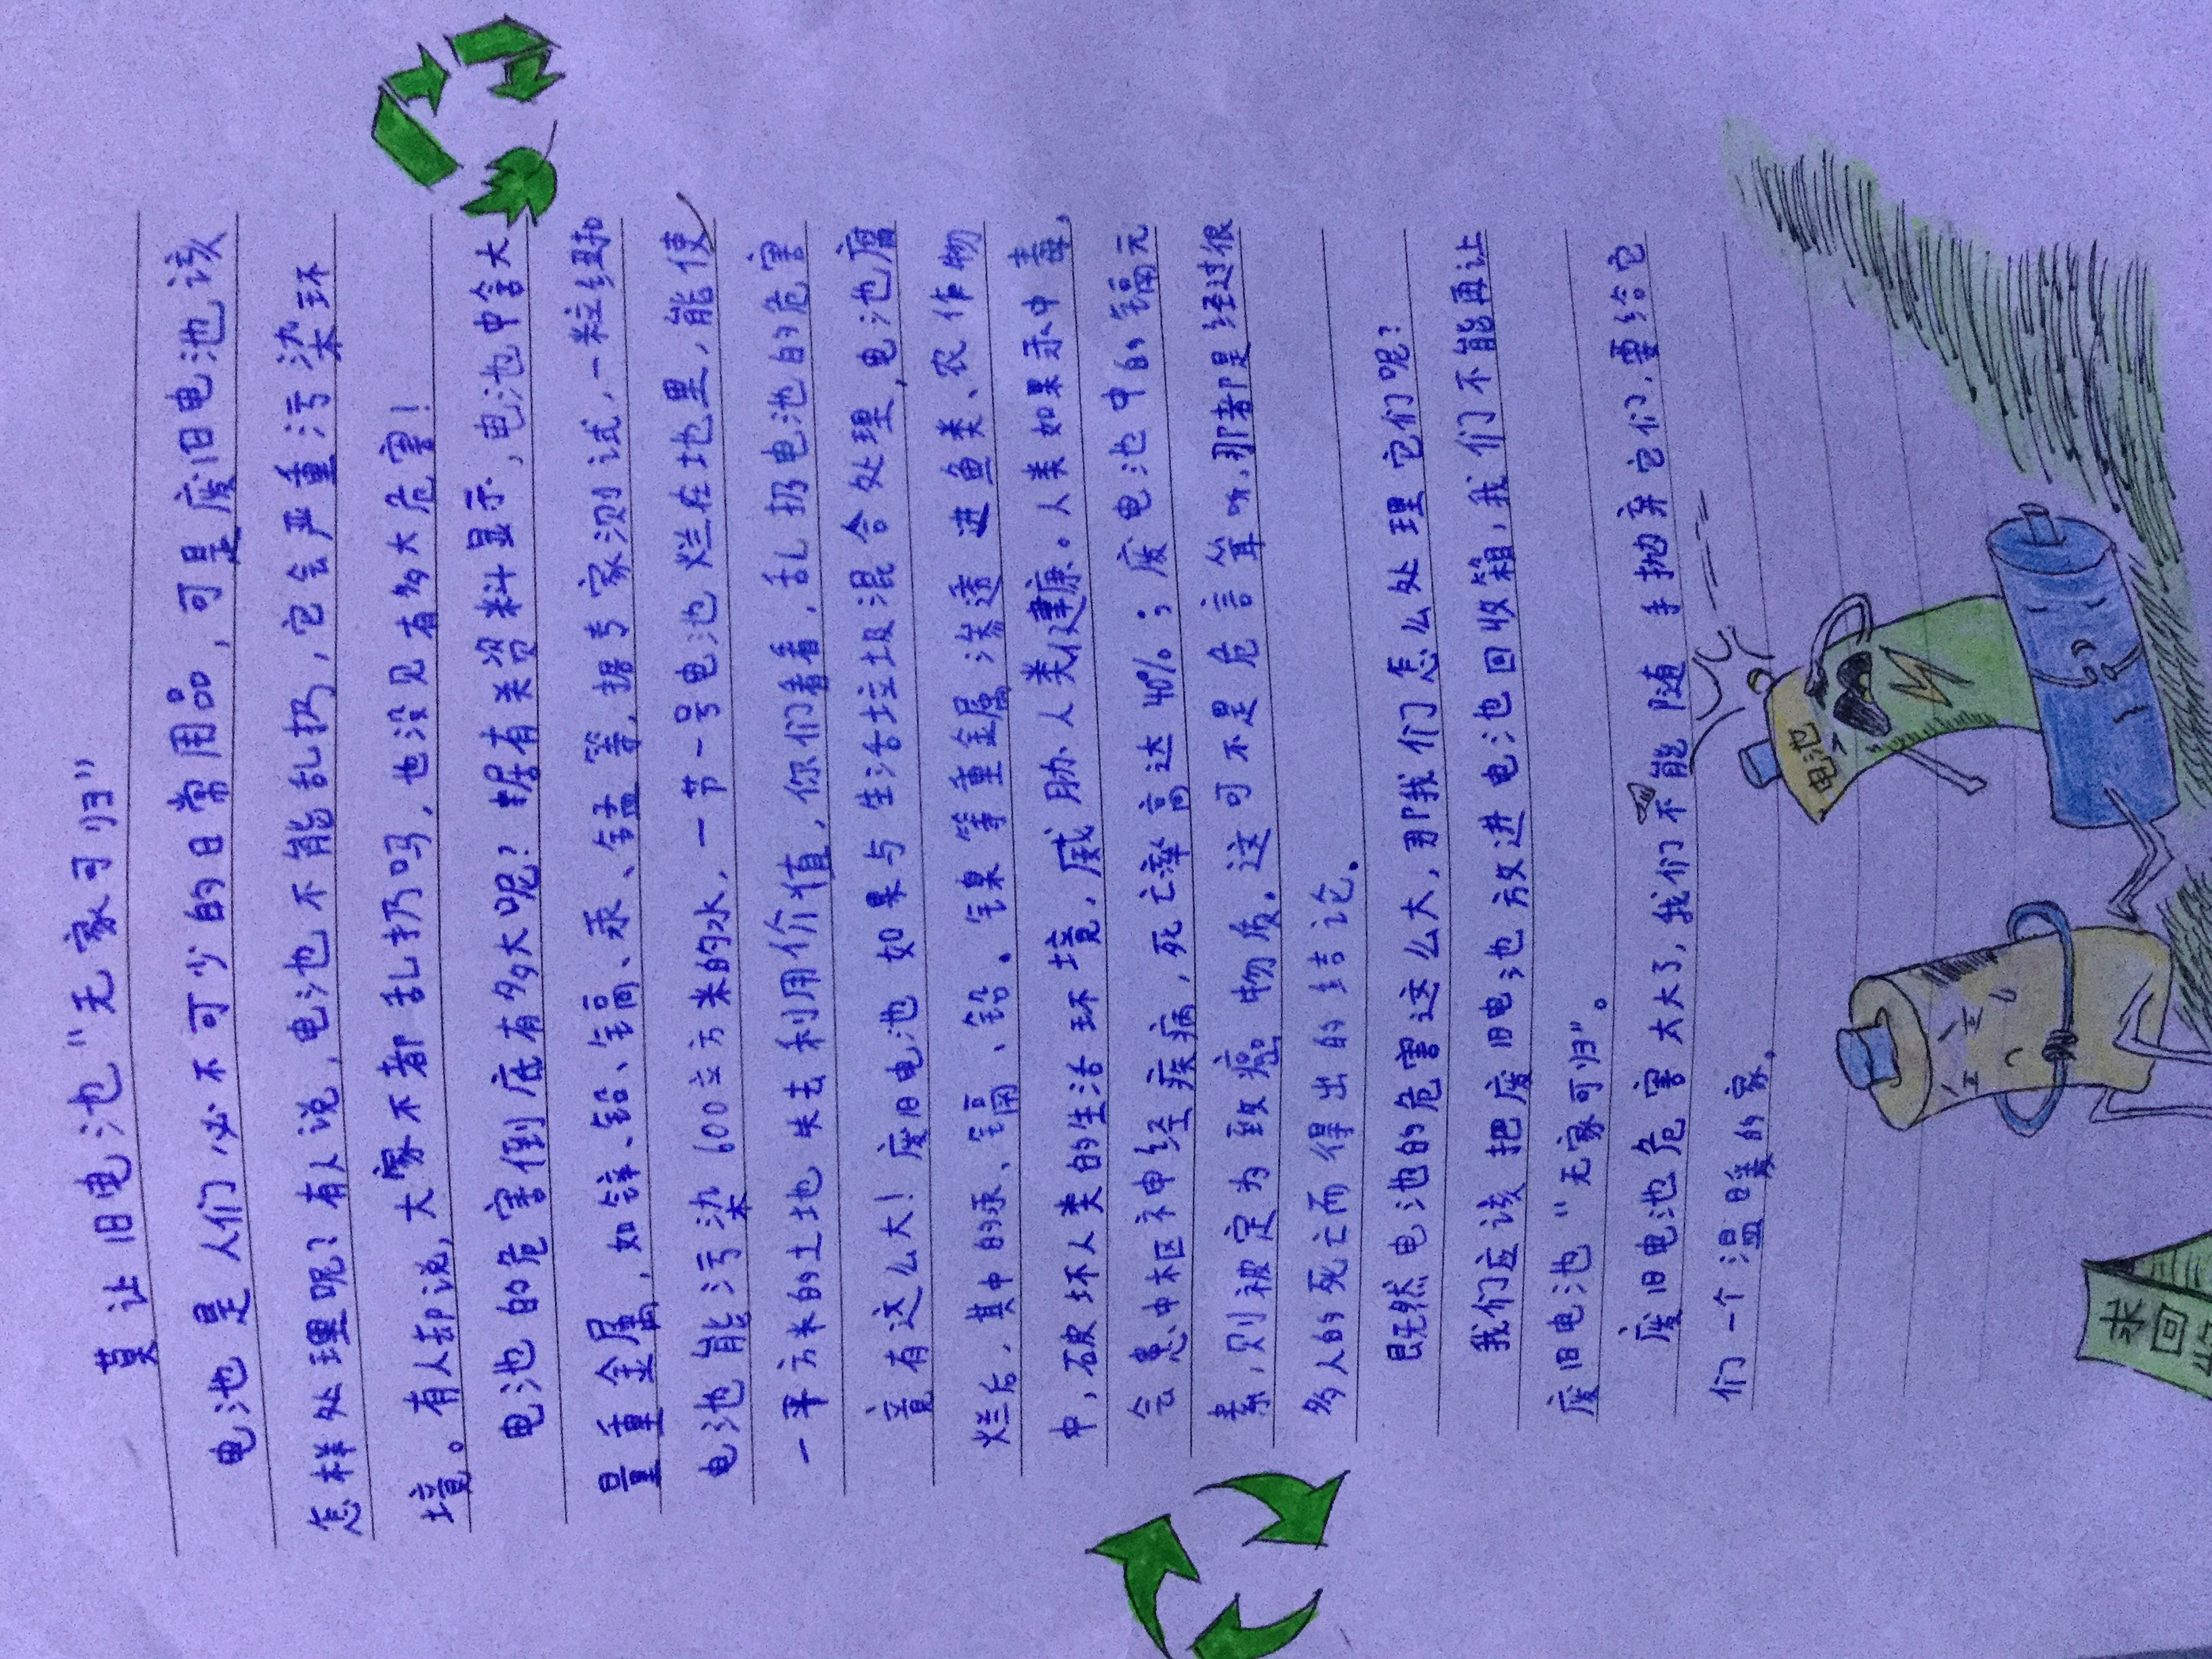 莫让旧电池“无家可归”
电池是人们必不可少的日常用品，可是废旧电池该
怎样处理呢？有人说，电池不能乱扔，它会严重污染环
境。有人却说，大家不都乱扔吗，也没见有多大危害！
电池的危害倒底有多大呢？据有关资料显示，电池中含大
量重金属，如锌、铅、镉、汞、锰等，据专家测试，一粒纽扣
电池能污染600立方米的水，一节一号电池烂在地里，能使
一平方米的土地失去利用价值，你们看看，乱扔电池的危害
竟有这么大！废旧电池如果与生活垃圾混合处理，电池腐
烂后，其中的汞、镉、铅。镍等重金属渗透进鱼类、农作物
中，破坏人类的生活环境，威胁人类健康。人类如果汞中毒，
会患中枢神经疾病，死亡率高达40%；废电池中的镉元
素，则被定为致癌物质。这可不是危言耸听，那都是经过很
多人的死亡而得出的结论。
既然电池的危害这么大，那我们怎么处理它们呢？
我们应该把废旧电池放进电池回收箱，我们不能再让
废旧电池“无家可归”。
废旧电池危害大大了，我们不能随手抛弃它们，要给它
们一个温暖的家。
电池
回